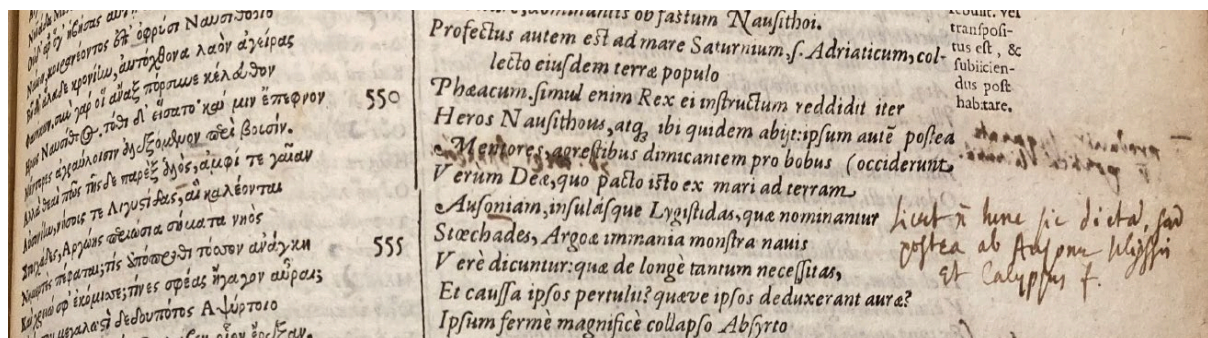 Ναίειν, κοιρανέοντος ὑπ' ὀφρύσι Ναυσιθόοιο
Βῆ δ' ἅλαδε κρονίην, αὐτόχθονα λαὸν ἀγείρας
Φαιήκων. σὺν γάρ οἱ ἄναξ πόρσυνε κέλευθον
Ἥρως Ναυσίθοος. τόθι δ' εἵσατο· καί μιν ἔπεφνον 550
Μέντορες ἀγραύλοισιν ἀλεξόμενον περὶ βουσίν.
Ἀλλὰ θεαὶ πῶς τῆς δε παρὲξ ἁλὸς, ἀμφί τε γαῖαν
Αὐσονίην, νήσους τε Λιγυστίδας, αἳ καλέονται
Στοιχάδες, Ἀργῴης περιώσια σήματα νηὸς
Νημερτὲς πέφαται; τίς ἀπόπροθι τόσσον ἀνάγκη 555
Καὶ χρειώ σφ' ἐκόμισσε; τίνες σφέας ἤγαγον αὖραι;
μεγαλωστὶ δεδουπότος Ἀψύρτοιο
ob fastum Nausithoi.
Profectus autem est ad mare Saturnium, ſ. Adriaticum, col-
lecto eiuſdem terræ populo
Phæacum. ſimul enim Rex ei inſtructum reddidit iter
Heros Nauſithous, atq; ibi quidem abijt: ipſum autē poſtea
Mentores, agreſtibus dimicantem pro bobus (occiderunt
Verum Deæ, quo pacto iſto ex mari ad terram
Auſoniam, inſuláſque Lygiſtidas, quæ nominantur
Stœchades, Argoæ immania monſtra nauis
Verè dicuntur: quæ de longè tantum neceſſitas,
Et cauſſa ipſos pertulit? quæve ipſos deduxerant auræ?
Ipſum fermè magnificè collapſo Abſyrto
vel
tranſpoſi-
tus eſt, &
ſubiicien-
dus poſt
habitare.
ſicut ñ tunc ſic dicta, ſed
poſtea ab Auſone Ulyſſis
et Calypſus f.